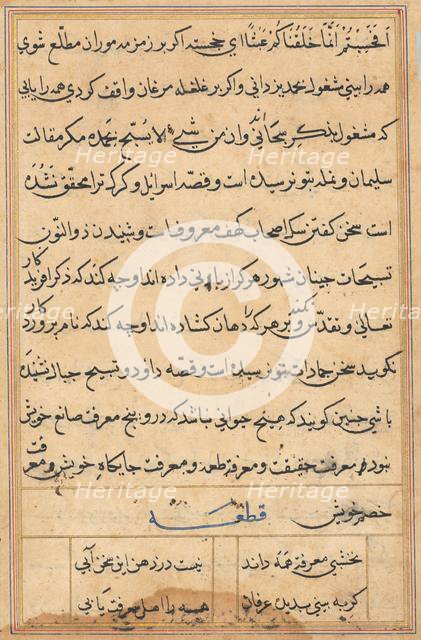 افحسبتم انما خلقناکم عبثا ای خجسته اکر بر زمزمه موران مطلع شوی
همه را بینی مشغول بحمد یزدانی و اکر بر غلغله مرغان واقف کردی همه را یابی
که مشغول بذکر سبحانی اند وان من شیء الا یسبح بحمده مکر مقالت
سلیمان و نمله بتو نرسیده است و قصه اسرایل و کرک ترا محقق نشده
است سخن کفتن سک اصحاب کهف معروفست و شنیدن ذو النون
تسبیحات مشهور هر کرا زبانی داده اند او چه کند که ذکر آفریدکار
تعالی و تقدس نکند و هر که را دهان کشاده اند او چه کند که نام پروردکار
نکوید سخن جمادات بتو نرسیده است و قصه داود و تسبیح جبال نشنیده
باشی چنین کویند که هیچ حیوانی نباشد که درو پنج معرفت صانع خویش
نبود معرفت حقیقت و معرفة طعمه و معرفت جایکاه خویش و معرفت
خصم خویش قطعه
نخشبی معرفة همه داند نیست در ذهن این سخن آبی
کربه بینی بدیده عرفان همه را اهل معرفت یابی
Heritage
Heritage
Heritage
Heritage
Heritage
Heritage
Heritage